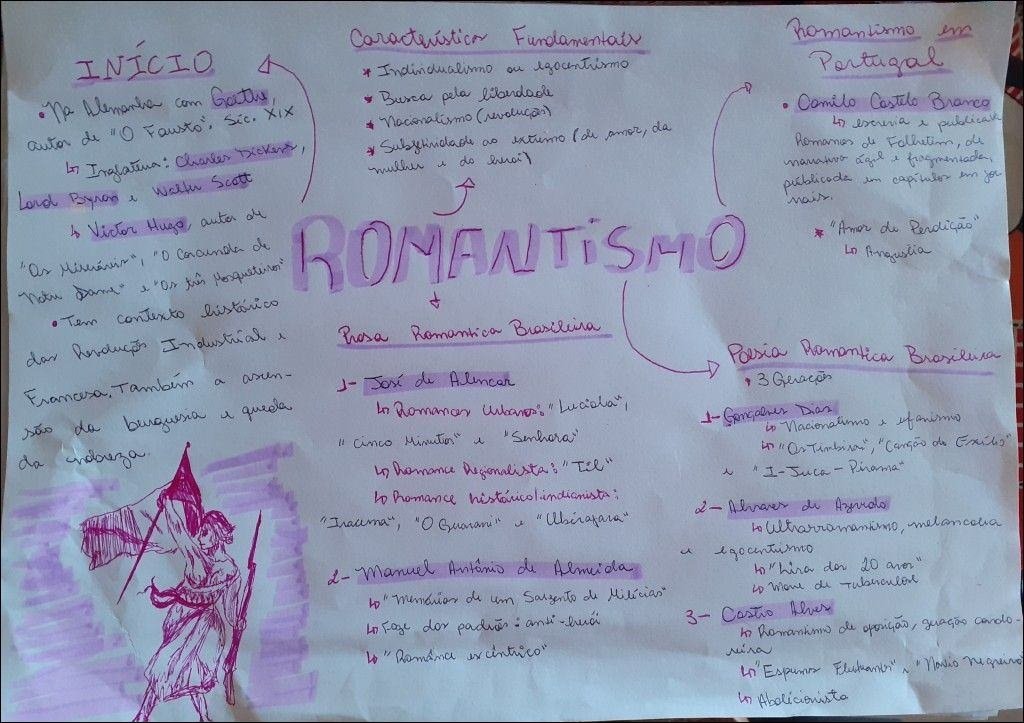 ROMANTISMO
INÍCIO
• Na Alemanha com Goethe,
autor de "O Fausto". Séc. XIX
↳ Inglaterra: Charles Dickens,
Lord Byron e Walter Scott
↳ Victor Hugo, autor de
"Os Miseráveis", "O Corcunda de
Notre Dame" e "Os três Mosqueteiros"
• Tem contexto histórico
das Revoluções Industrial e
Francesa. Também a ascen-
são da burguesia e queda
da nobreza.
Características Fundamentais
* Individualismo ou egocentrismo
* Busca pela liberdade
* Nacionalismo (revolução)
* Subjetividade ao extremo (de amor, da
mulher e do herói)
Romantismo em
Portugal
• Camilo Castelo Branco
↳ escrevia e publicava
Romances de Folhetim, de
narrativa ágil e fragmentada,
públicada em capítulos em jor
nais.
* "Amor de Perdição"
↳ Angustia
Prosa Romantica Brasileira
1- José de Alencar
↳ Romances Urbanos: "Luciola",
"cinco Minutos" e "Senhora"
↳ Romance Regionalista: "Til"
↳ Romance histórico/indianista:
"Iracema", "O Guarani" e "Ubirajara"
2- Manuel Antônio de Almeida
↳ "Memórias de um Sargento de Milícias"
↳ Foge dos padrões: anti-herói
↳ "Romance excêntrico"
Poesia Romantica Brasileira
• 3 Gerações
1- Gonçalves Dias
↳ Nacionalismo e ufanismo
↳ "Os Timbiras", "Canção do Exílio"
e "I-Juca-Pirama"
2- Alvares de Azevedo
↳ Ultrarromantismo, melancolia
e egocentrismo
↳ "Lira dos 20 anos"
↳ Morre de Tuberculose
3- Castro Alves
↳ Romantismo de oposição, geração condo-
reira
↳ "Espumas Flutuantes" e "Navio Negreiro"
↳ Abolicionista